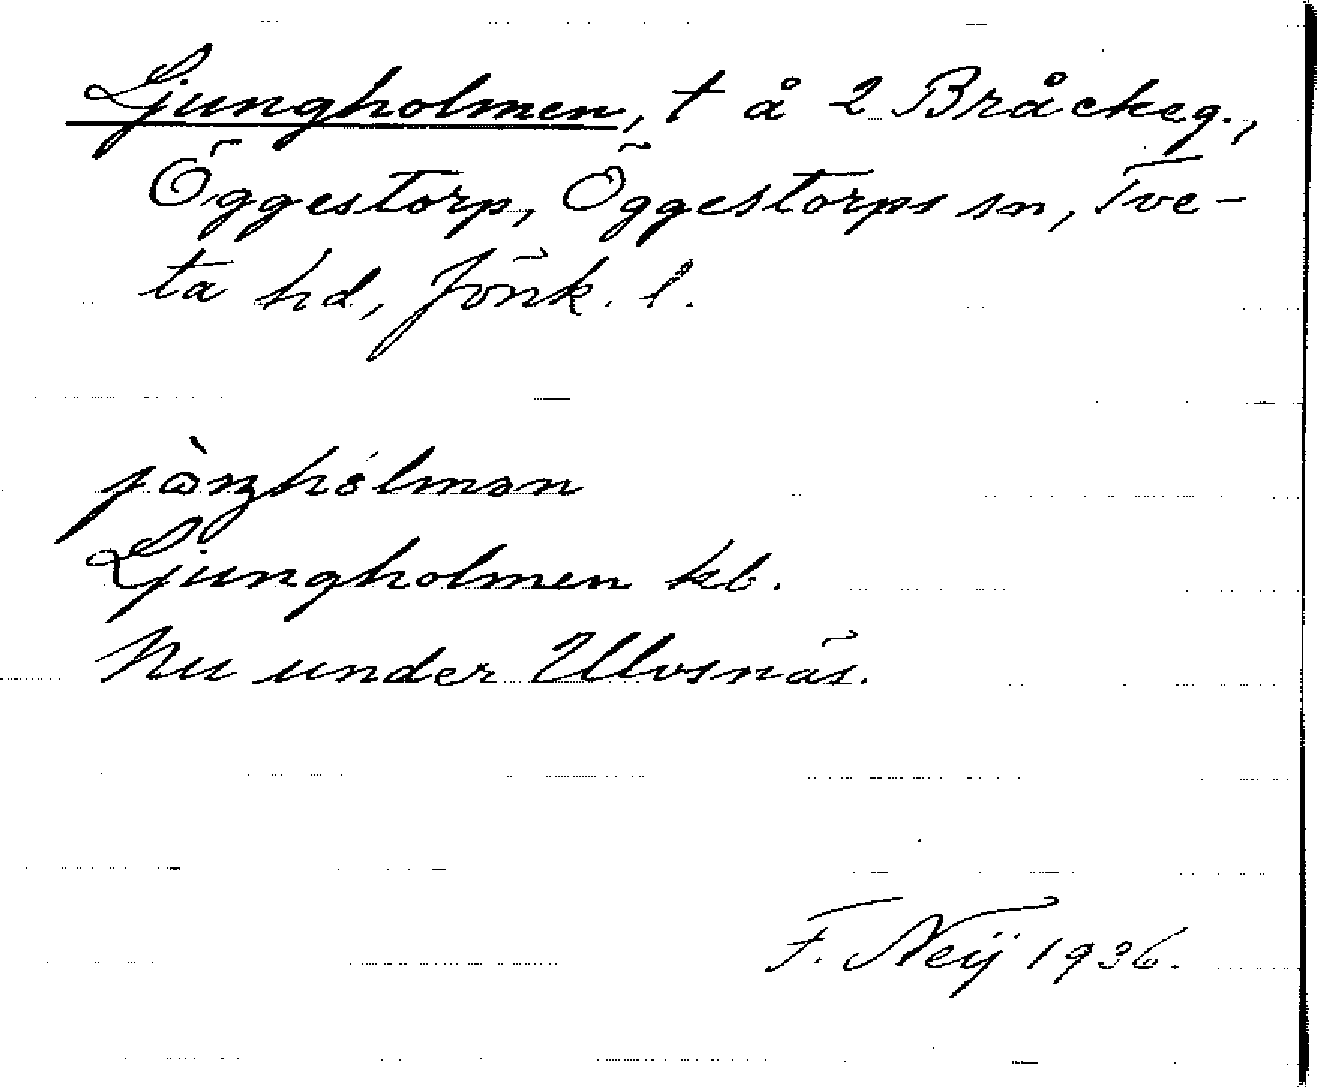 Ljungholmen, t å 2 Bråckeg.,
Öggestorp, Öggestorps sn, Tve-
ta hd, Jönk. l.
Ljungholmen kb.
Nu under Ulvsnäs.
F. Neij 1936.